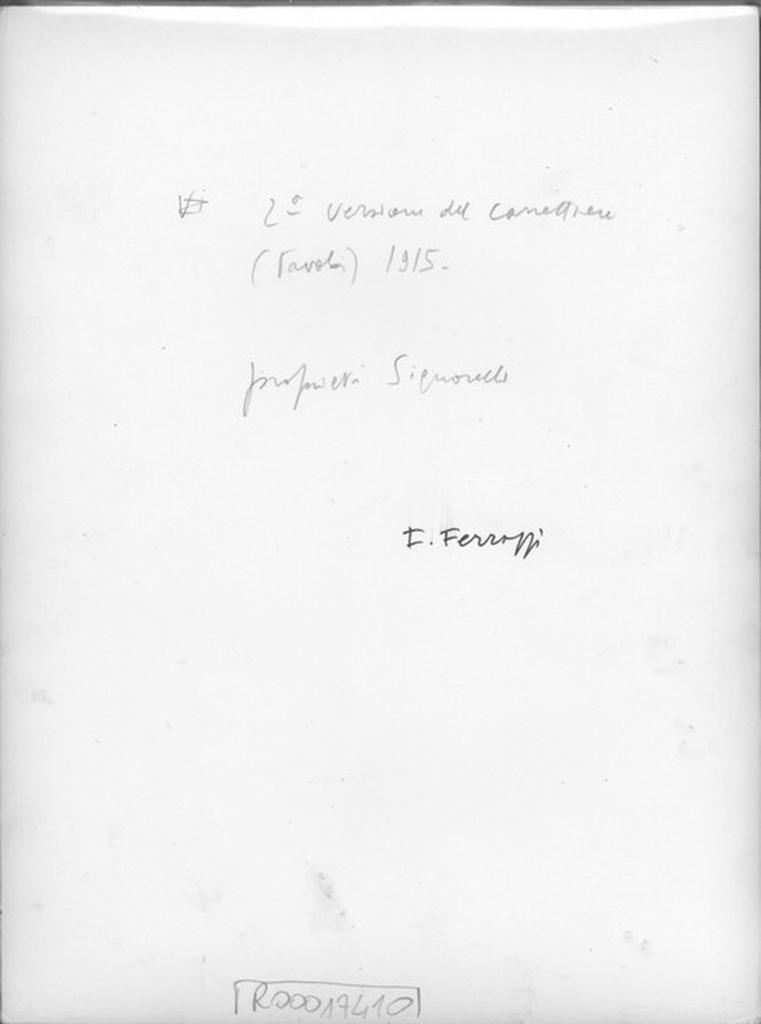 2ª versione del carrettiere
(Tavola) 1915.
proprietà Signorelli
E. Ferrazzi
R00017410